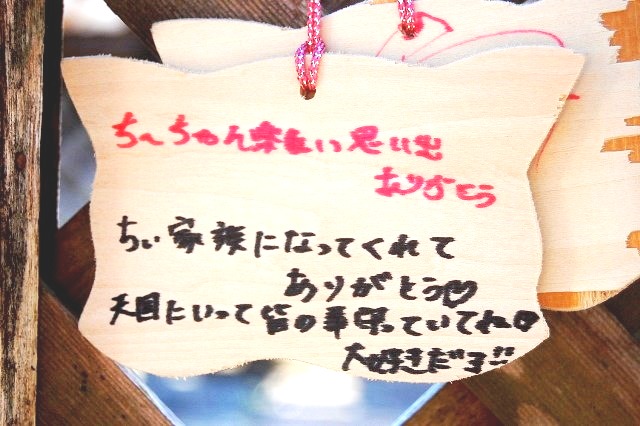 ちーちゃん楽しい思い出
ありがとう
ちぃ家族になってくれて
ありがとう♡
天国にいって皆の事見守っていてね♡
大好きだヨ!!